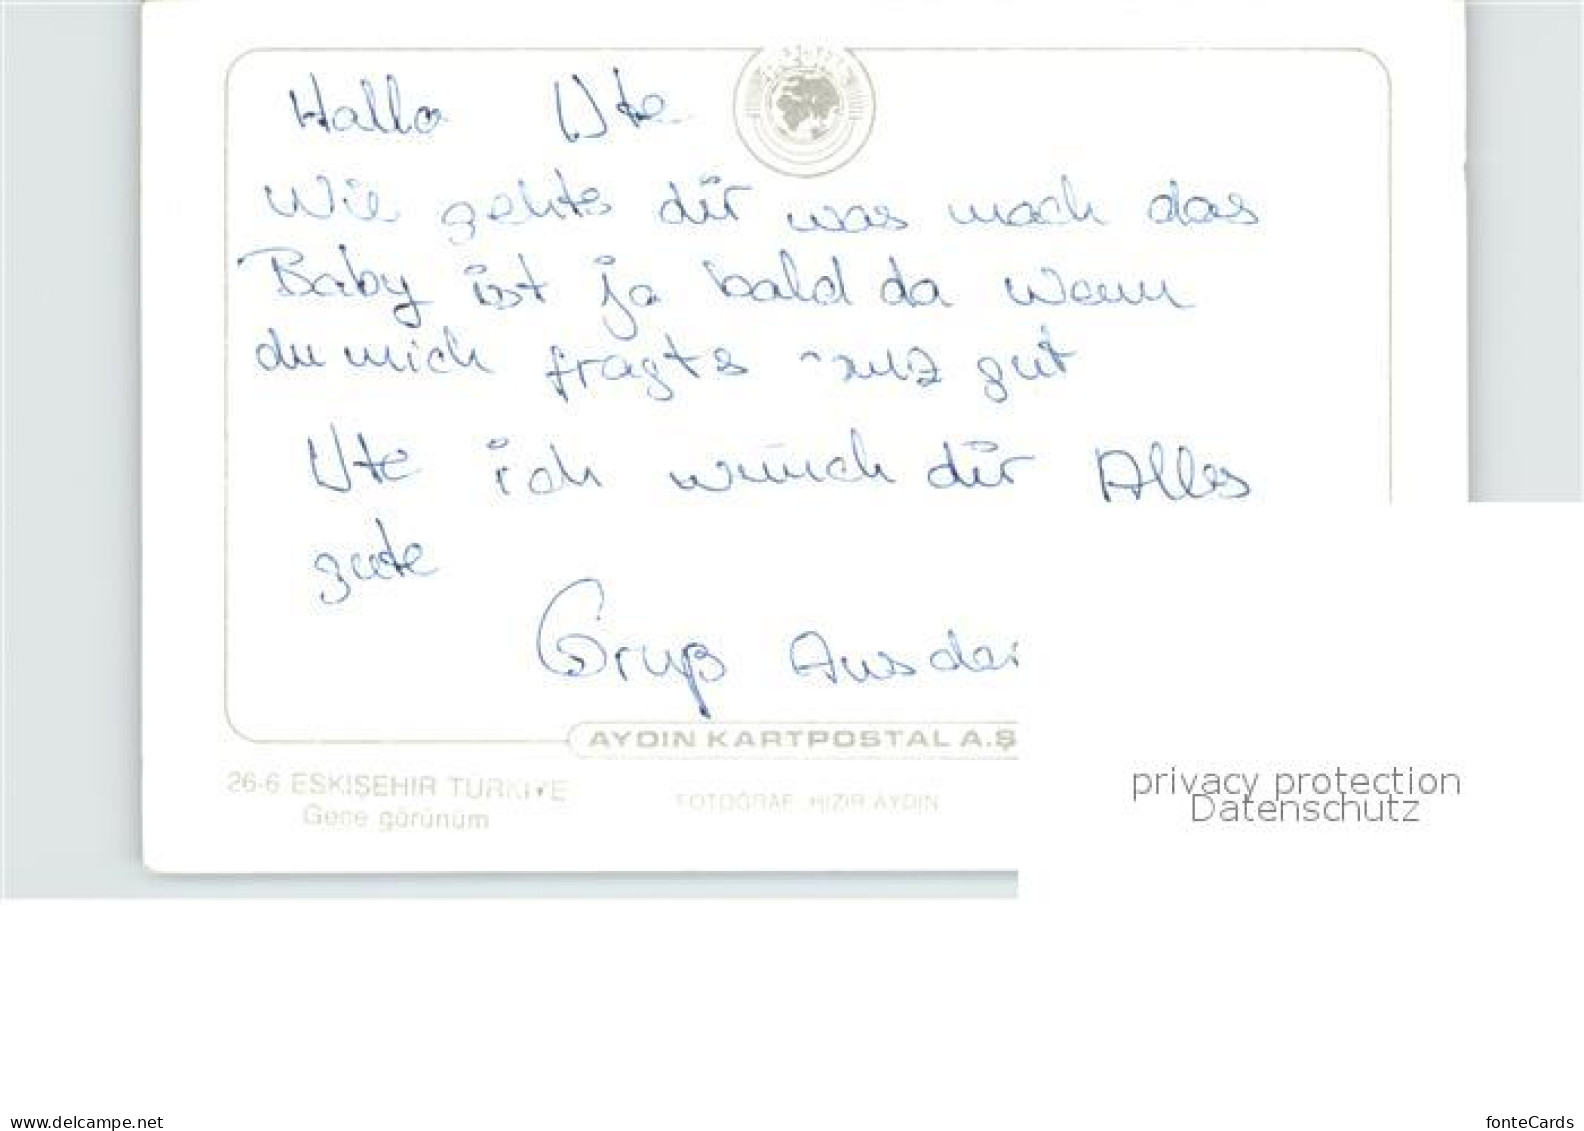 Hallo Ute
Wie gehts dir was mach das
Baby ist ja bald da wenn
du mich fragts gut
Ute ich wünch dir Alles
gute
Gruß Aus der
AYDIN KARTPOSTAL A.Ş
26-6 ESKİŞEHİR TÜRKİYE
Gene görünüm
FOTOĞRAF HIZIR AYDIN
privacy protection
Datenschutz
www.delcampe.net
fonteCards